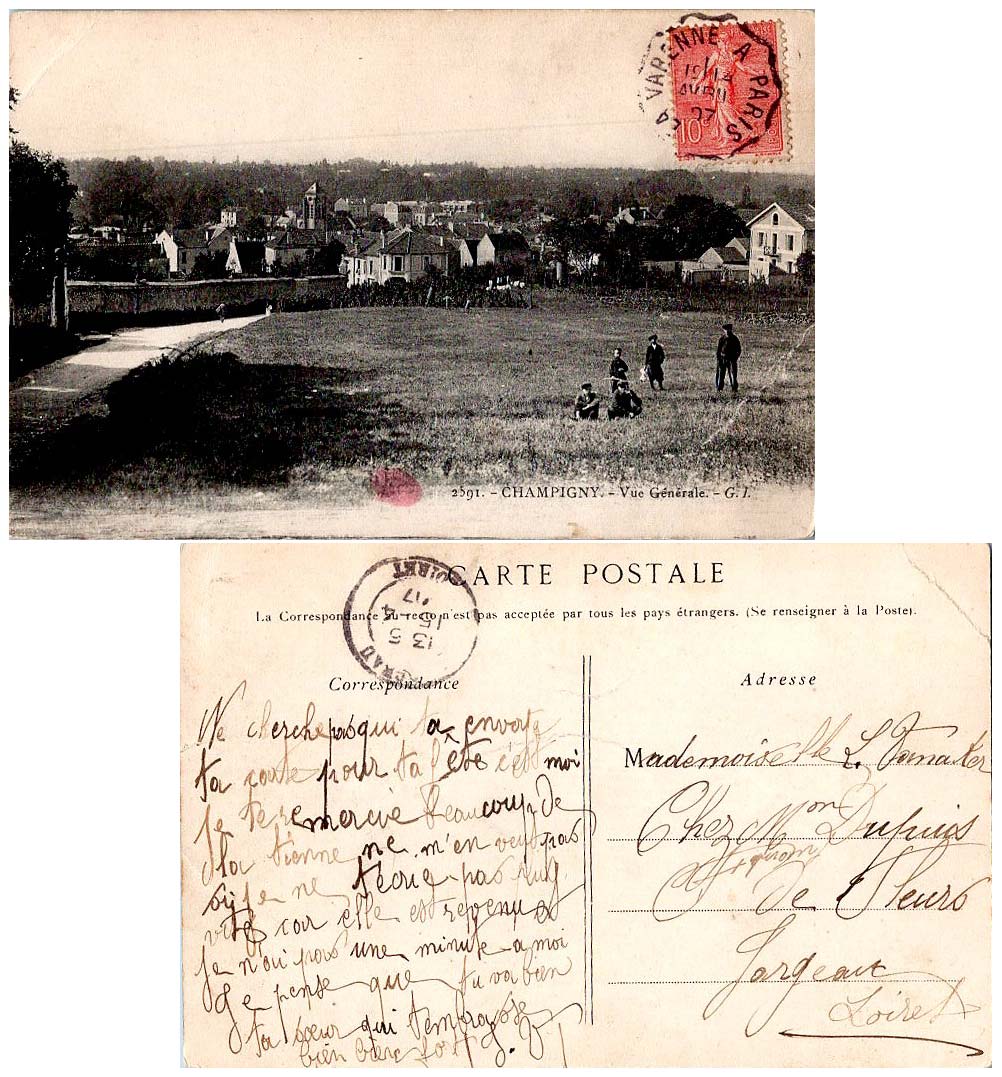 LA VARENNE A PARIS
AVRIL
07
10c
2591. - CHAMPIGNY. - Vue Générale. - G. I.
CARTE POSTALE
La Correspondance au recto n'est pas acceptée par tous les pays étrangers. (Se renseigner à la Poste).
LOIRET
13 5
15 - 4
07
Correspondance
Adresse
Ne cherche pas qui ta envoyé
ta carte pour ta fête c'est moi
je te remercie beaucoup de
la tienne ne m'en veut pas
si je ne
vite car elle est revenu et
je n'ai pas une minute a moi
Je pense que tu va bien
ta sœur qui t'embrasse
bien bien fort
Mademoiselle L.
Chez Mon Dupuis
de Fleurs
Jargeau
Loiret